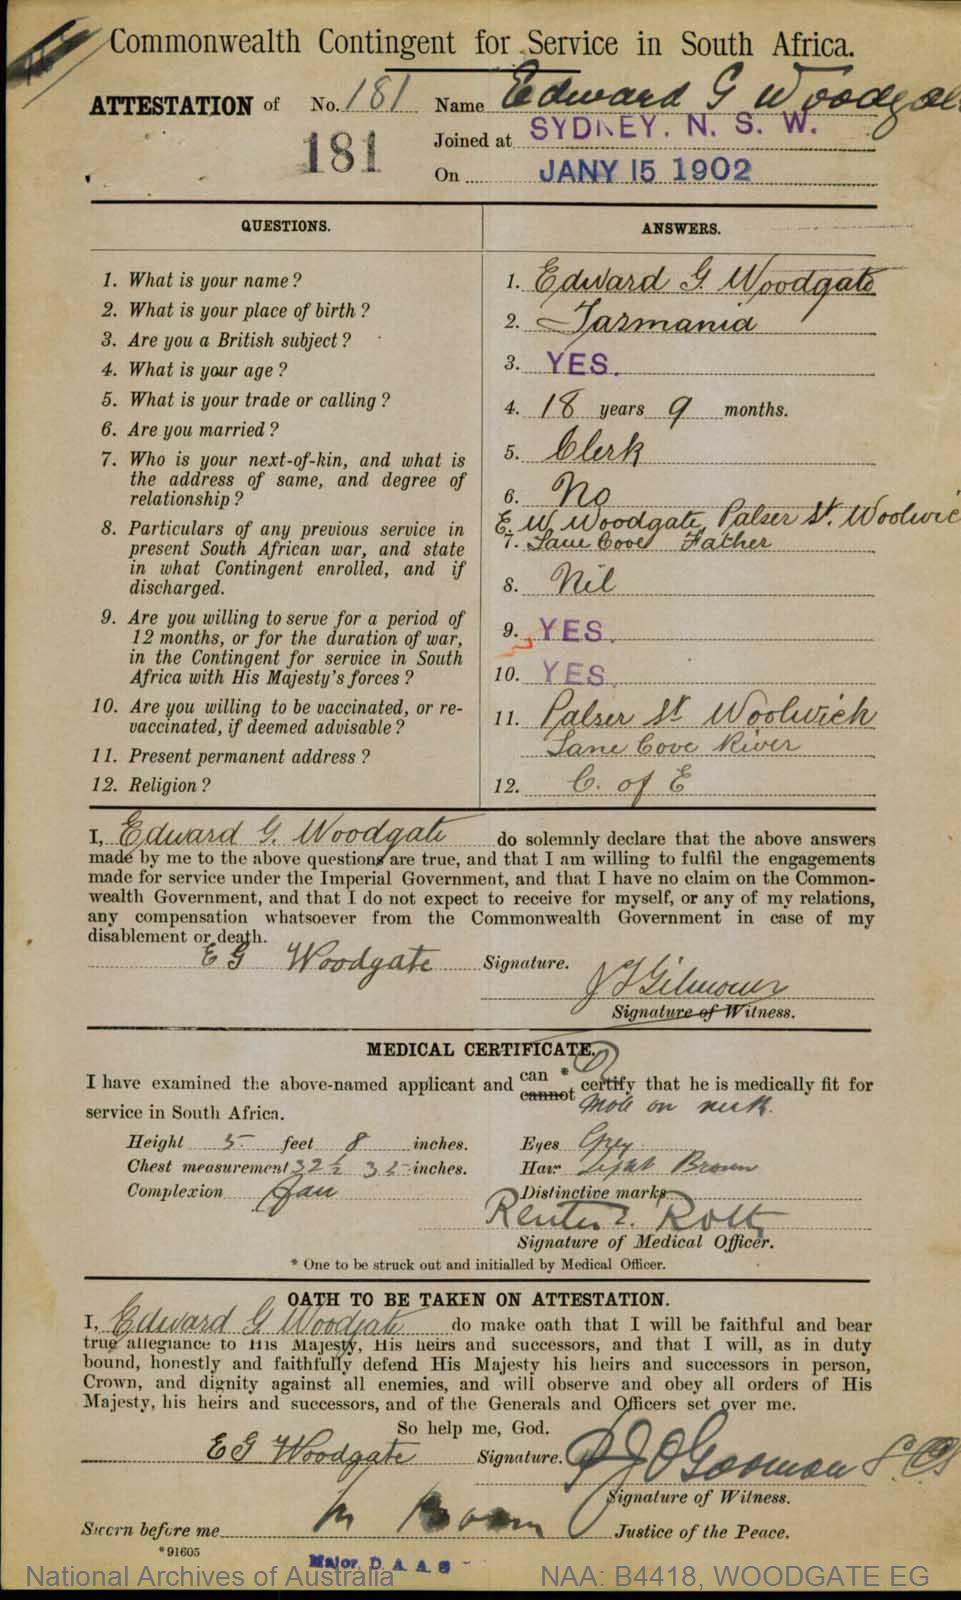 Commonwealth Contingent for Service in South Africa.
ATTESTATION of No. 181 Name Edward G Woodgate
Joined at SYDNEY. N. S. W.
181
On JANY 15 1902
QUESTIONS. ANSWERS.
1. What is your name?
2. What is your place of birth?
3. Are you a British subject?
4. What is your age?
5. What is your trade or calling?
6. Are you married?
7. Who is your next-of-kin, and what is
the address of same, and degree of
relationship?
8. Particulars of any previous service in
present South African war, and state
in what Contingent enrolled, and if
discharged.
9. Are you willing to serve for a period of
12 months, or for the duration of war,
in the Contingent for service in South
Africa with His Majesty's forces?
10. Are you willing to be vaccinated, or re-
vaccinated, if deemed advisable?
11. Present permanent address?
12. Religion?
1. Edward G. Woodgate
2. Tasmania
3. YES.
4. 18 years 9 months.
5. Clerk
6. No
E. W. Woodgate, Palser St. Woolwic
7. Lane Cove Father
8. Nil
9. YES.
10. YES.
11. Palser St Woolwich
Lane Cove River
12. C. of E
I, Edward G. Woodgate do solemnly declare that the above answers
made by me to the above questions are true, and that I am willing to fulfil the engagements
made for service under the Imperial Government, and that I have no claim on the Common-
wealth Government, and that I do not expect to receive for myself, or any of my relations,
any compensation whatsoever from the Commonwealth Government in case of my
disablement or death.
E G Woodgate Signature.
J Gilmour
Signature of Witness.
MEDICAL CERTIFICATE.
I have examined the above-named applicant and can * cannot certify that he is medically fit for
service in South Africa.
Mole on neck.
Height 5 feet 8 inches. Eyes Grey
Chest measurement 32½ 35 inches. Hair Light Brown
Complexion Fair Distinctive marks
Signature of Medical Officer.
* One to be struck out and initialled by Medical Officer.
OATH TO BE TAKEN ON ATTESTATION.
I, Edward G Woodgate do make oath that I will be faithful and bear
true allegiance to His Majesty, His heirs and successors, and that I will, as in duty
bound, honestly and faithfully defend His Majesty his heirs and successors in person,
Crown, and dignity against all enemies, and will observe and obey all orders of His
Majesty, his heirs and successors, and of the Generals and Officers set over me.
So help me, God.
E G Woodgate Signature.
Signature of Witness.
Sworn before me Justice of the Peace.
* 91605
Major, D. A. A. G
National Archives of Australia NAA: B4418, WOODGATE EG